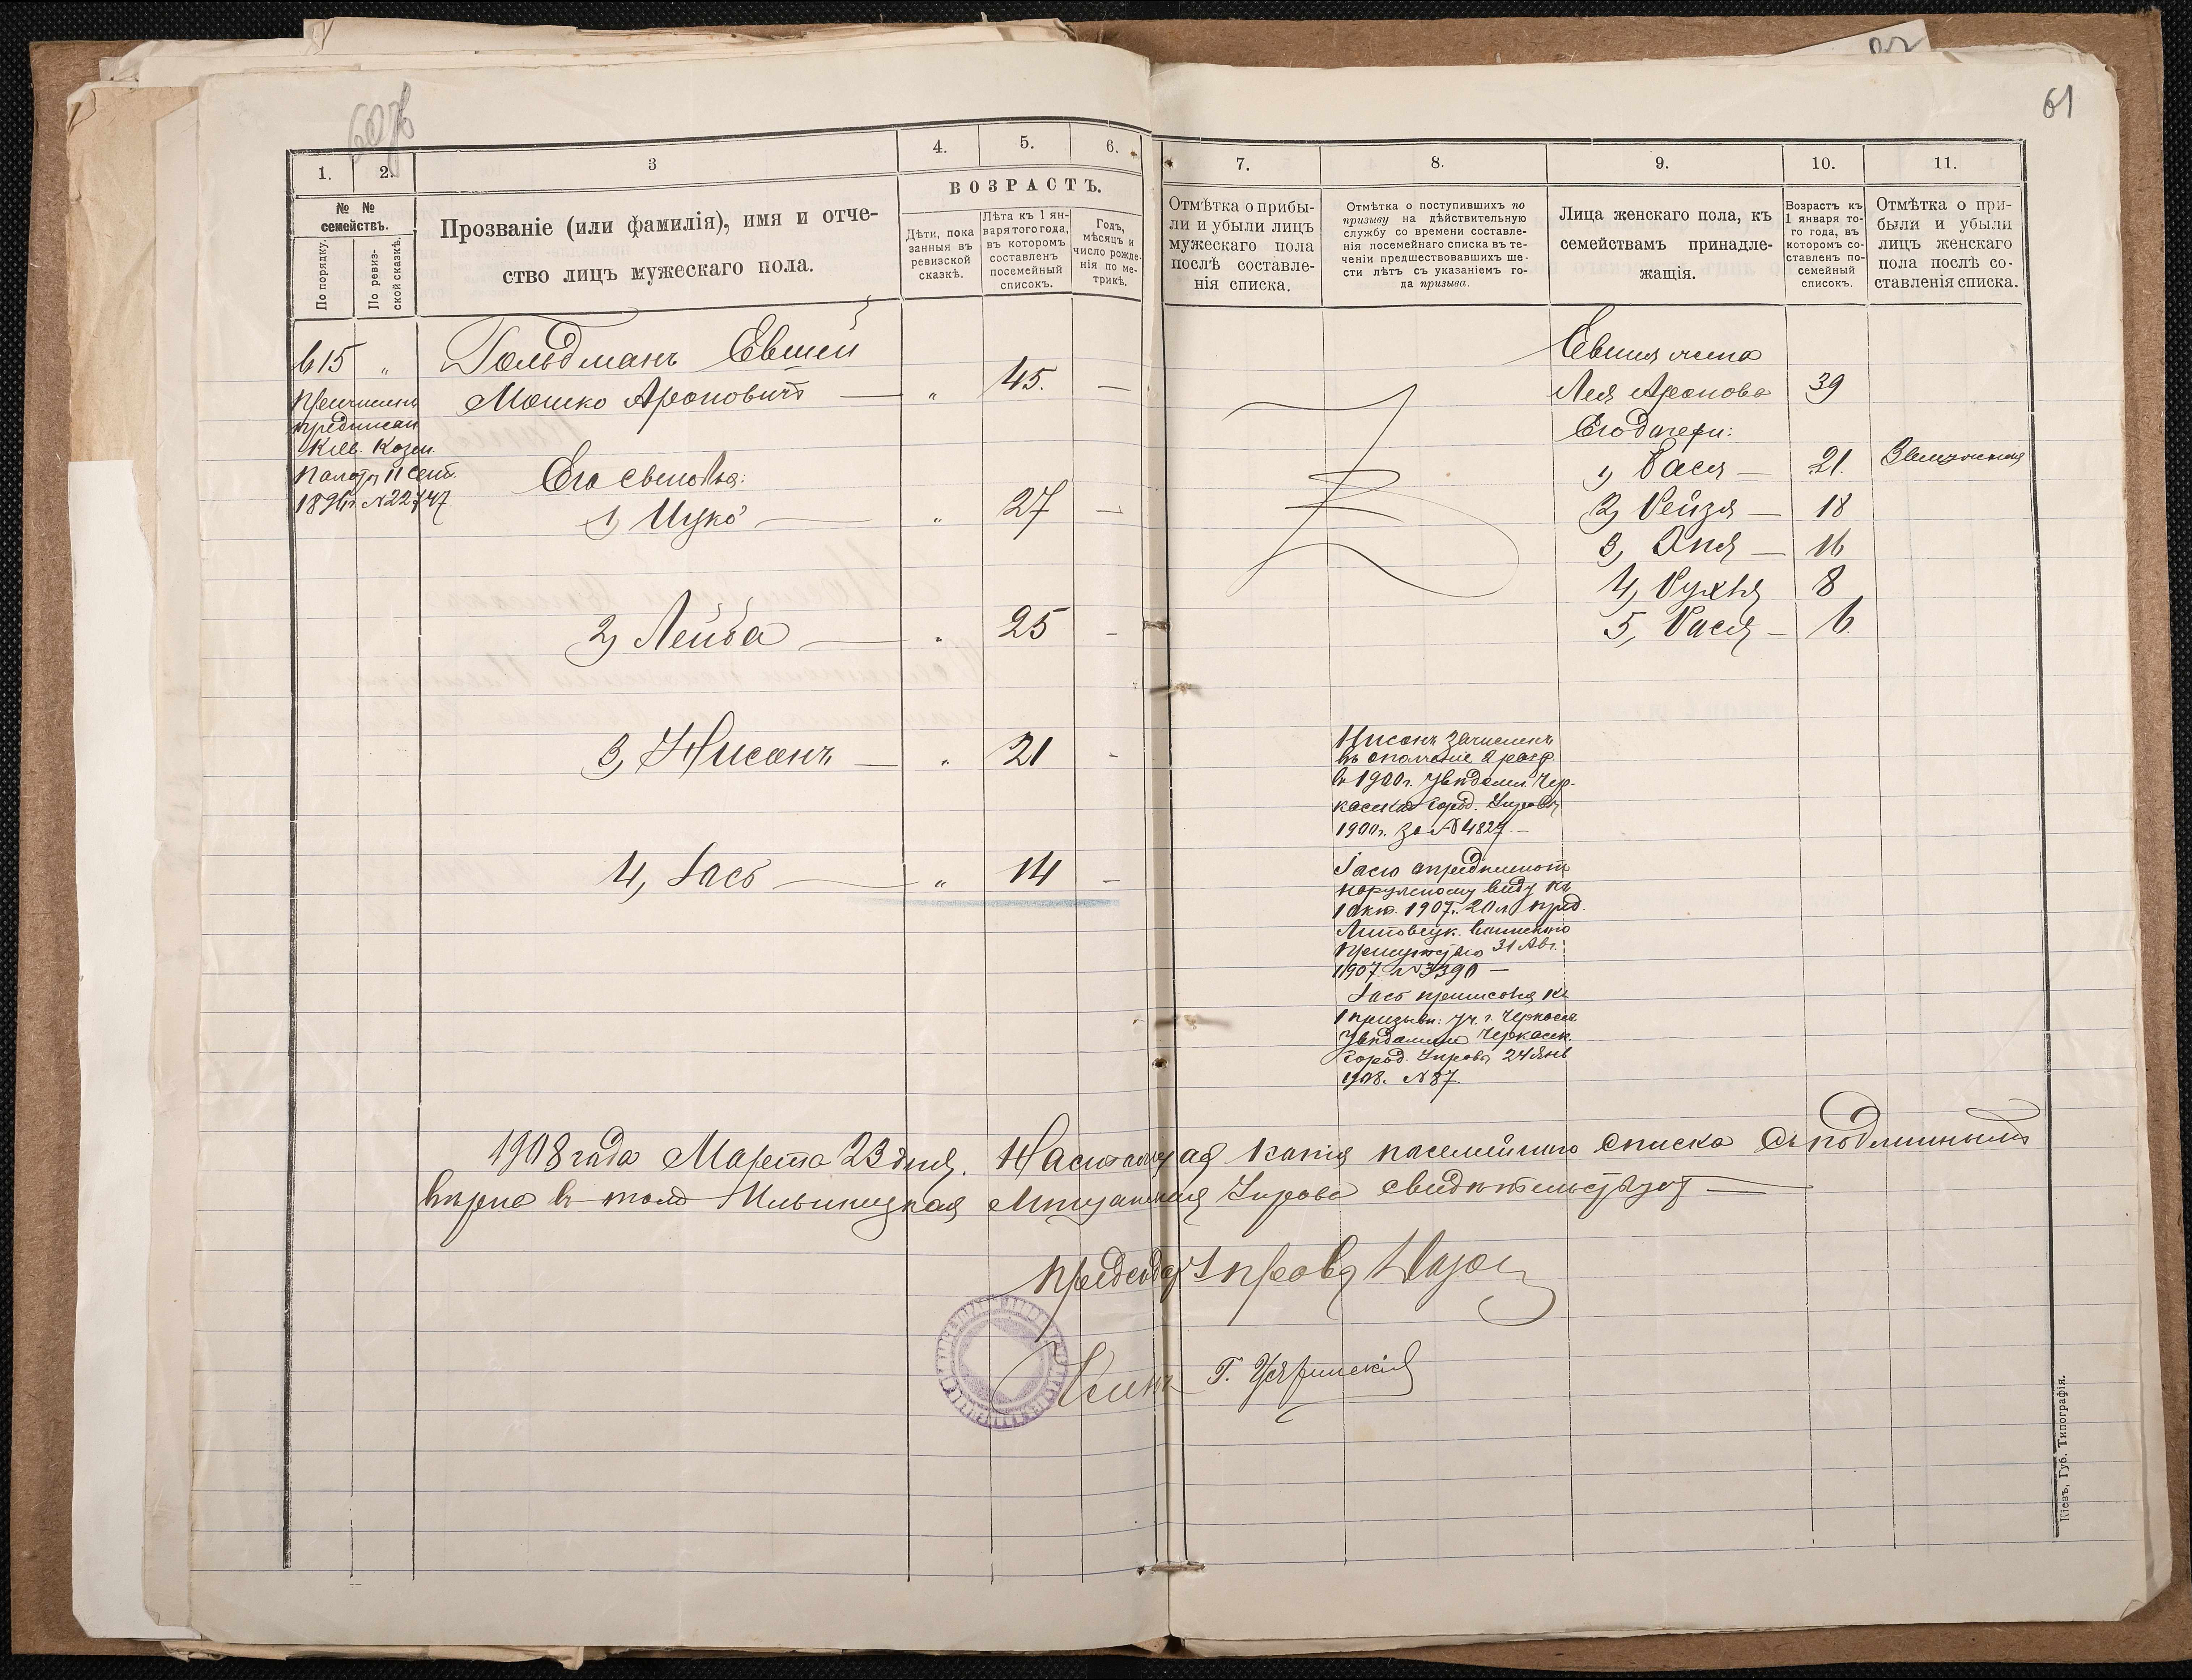 61
1.
2.
3
4.
5.
6.
7.
8.
9.
10.
11.
№ №
семействъ.
По порядку.
По ревиз-
ской сказкѣ.
Прозваніе (или фамилія), имя и отче-
ство лицъ мужескаго пола.
ВОЗРАСТЪ.
Дѣти, пока
занныя въ
ревизской
сказкѣ.
Лѣта къ 1 ян-
варя того года,
въ которомъ
составленъ
посемейный
списокъ.
Годъ,
мѣсяцъ и
число рожде-
нія по ме-
трикѣ.
Отмѣтка о прибы-
ли и убыли лицъ
мужескаго пола
послѣ составле-
нія списка.
Отмѣтка о поступившихъ по
призыву на дѣйствительную
службу со времени составле-
нія посемейнаго списка въ те-
ченіи предшествовавшихъ ше-
сти лѣтъ съ указаніемъ го-
да призыва.
Лица женскаго пола, къ
семействамъ принадле-
жащія.
Возрастъ къ
1 января то-
го года, въ
которомъ со-
ставленъ по-
семейный
списокъ.
Отмѣтка о при-
были и убыли
лицъ женскаго
пола послѣ со-
ставленія списка.
615 " Гольдманъ Евшей
Мошко Ароновичъ — " 45. —
предписан
Кіев. Казен.
Палаты 11 Сент.
189 г. № 22747
Его сыновья:
1, Ицко — " 27 —
2, Лейба — " 25 —
3, Нисонъ — " 21 -
4, Іась — " 14 —
Евшея жена
Лея Аронова 39
Его дочери:
1, Бася — 21. Замужняя
2, Рейзя — 18
3, Хня — 16
4, Рухля 8
5, Рася — 6.
Нисонъ зачисленъ
въ ополченіе 2 разр.
в 1900 г. Увѣдомл. Чер-
касская Город. Управы
1900 г. за № 4827 —
Іасю опредѣленно
наружному виду къ
1 окт. 1907 г. 20 л. пред.
Липовецк. воинскаго
Присутствія 31 Авг.
1907 № 3390 —
Іась приписанъ къ
1 призывн. уч. г. Черкассъ
Увѣдомленіе Черкасск.
Город. Управы 24 Янв
1908. № 87.
1908 года Марта 23 дня. Настоящая копія посемейнаго списка съ подлиннымъ
вѣрна в томъ Ильинецкая Мѣщанская Управа свидѣтельствуетъ —
Предсѣдат. Управы
Кіевъ, Губ. Типографія.